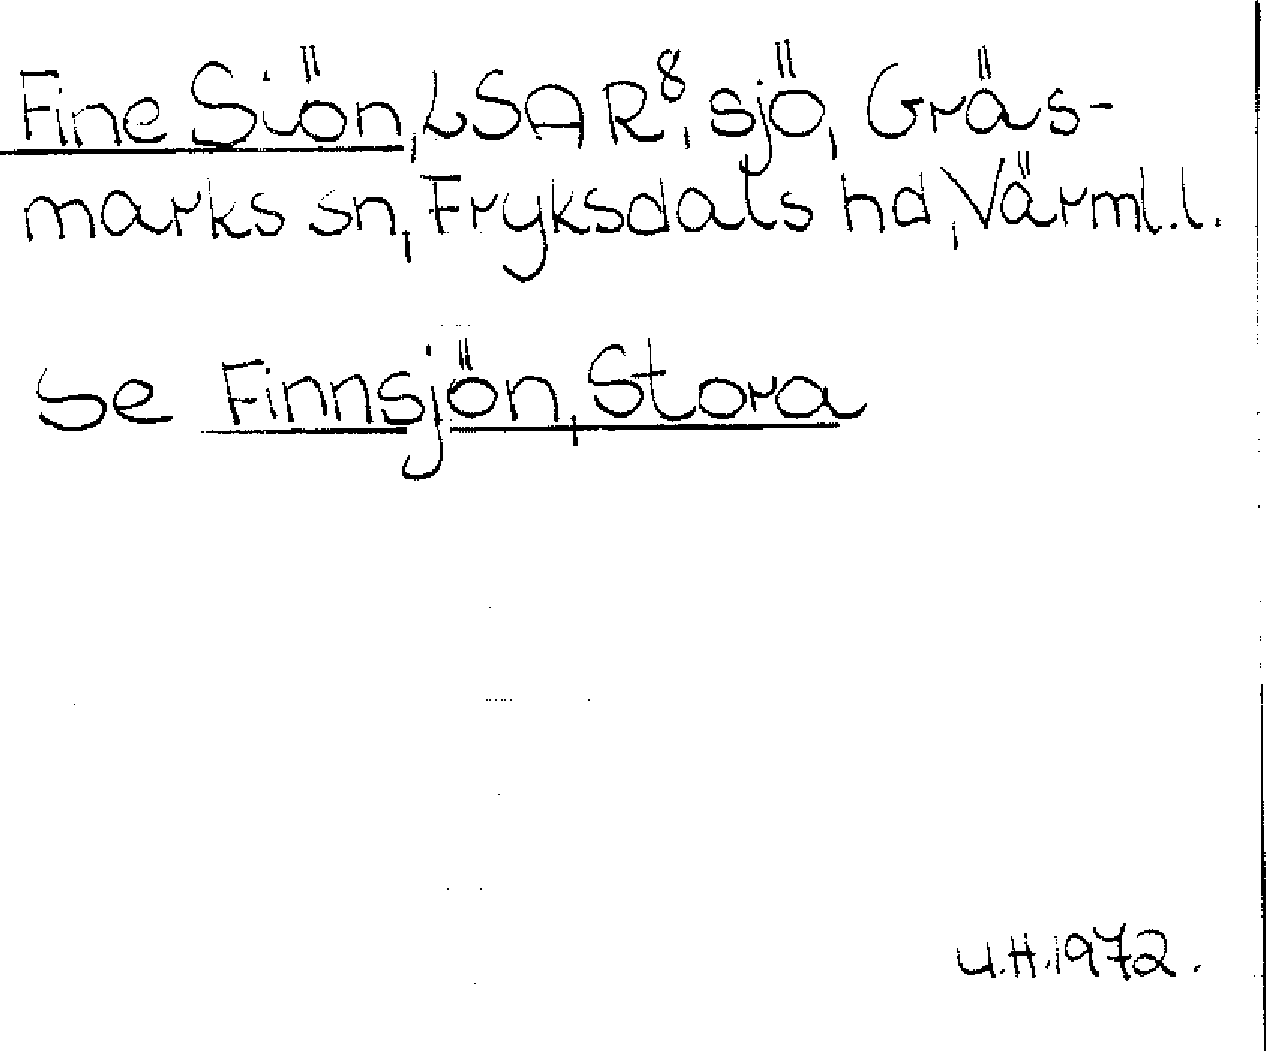 Fine Siön, LSAR⁸, sjö, Gräs-
marks sn, Fryksdals hd, Värml. l.
se Finnsjön, Stora
U.H. 1972.